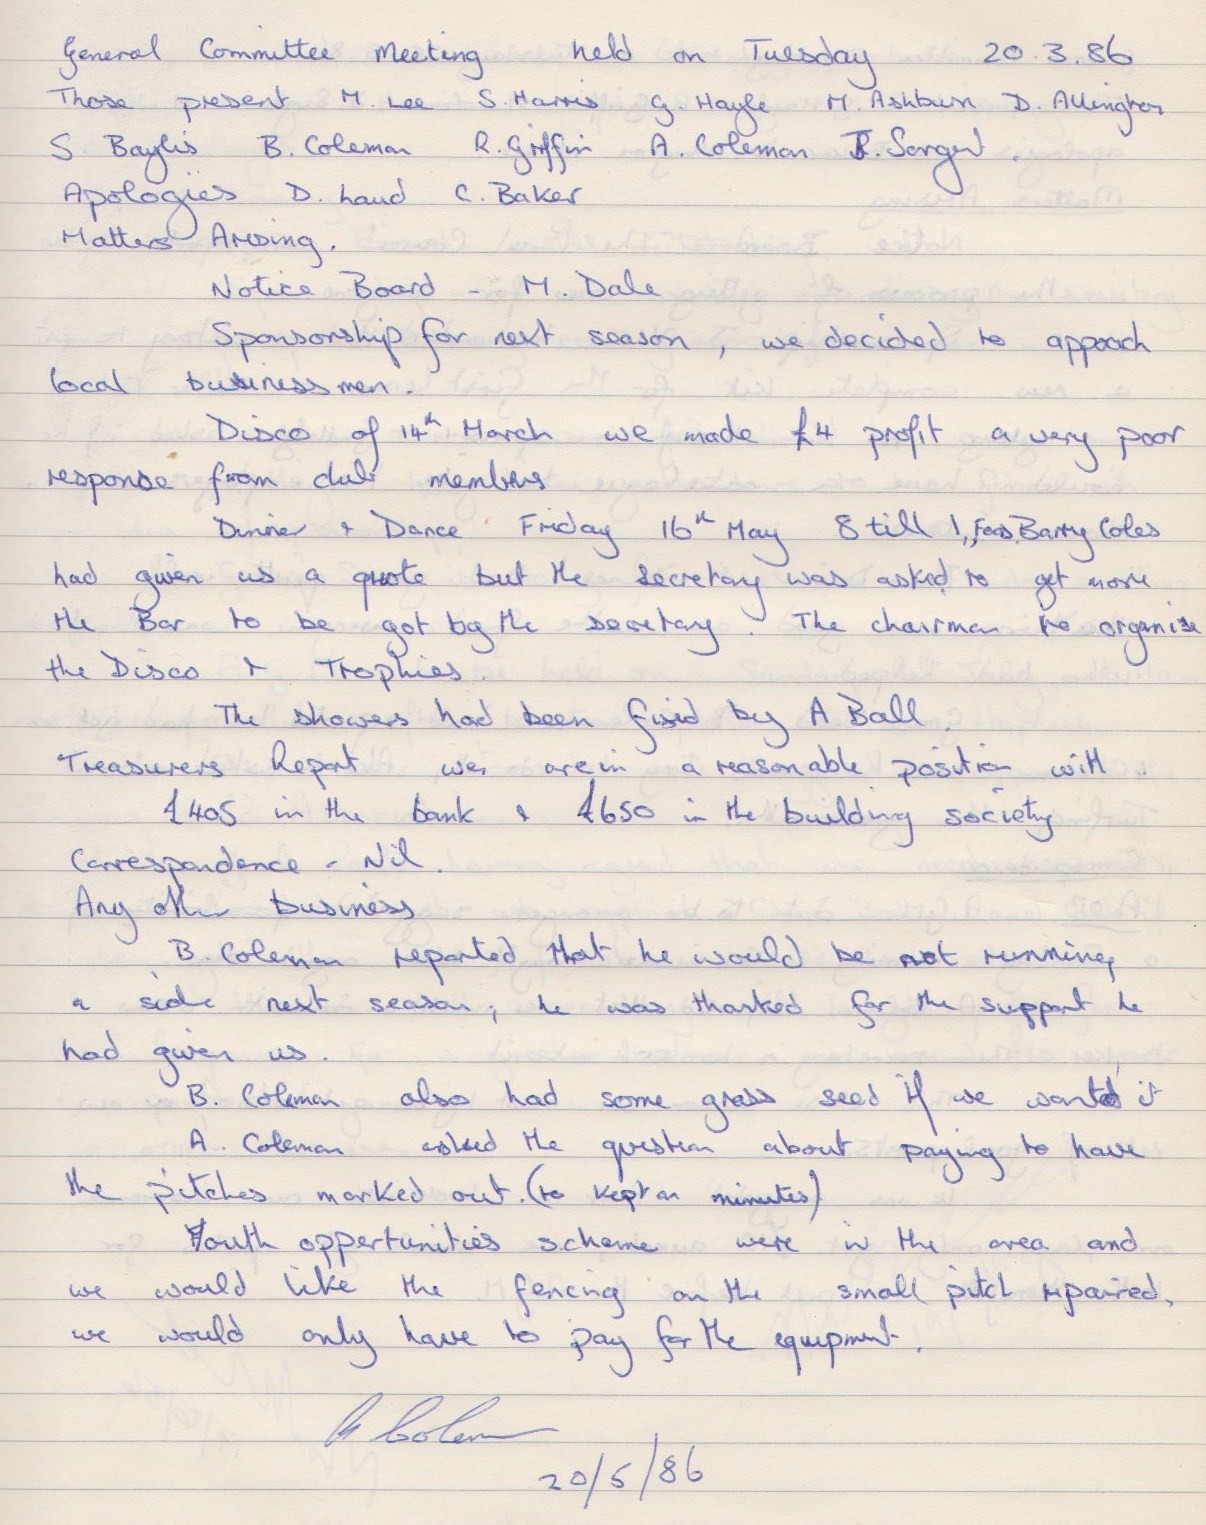 General Committee Meeting held on Tuesday 20.3.86
Those present M. Lee S. Harris G. Hayle M. Ashburn D. Allington
S Baylis B. Coleman R. Griffin A. Coleman R. Sargent.
Apologies D. Laud C. Baker
Matters Arising.
Notice Board - M. Dale
Sponsorship for next season, we decided to appoach
local businessmen.
Disco of 14th March we made £4 profit a very poor
response from club members
Dinner & Dance Friday 16th May 8 till 1, Barry Coles
had given us a quote but the secretary was asked to get more
the Bar to be got by the secretary. The chairman to organise
the Disco & Trophies.
The showers had been fixed by A Ball.
Treasurers Report we are in a reasonable position with
£405 in the bank & £650 in the building society
Correspondence - Nil.
Any other business
B. Coleman reported that he would be not running
a side next season; he was thanked for the support he
had given us.
B. Coleman also had some grass seed if we wanted it
A. Coleman asked the question about paying to have
the pitches marked out. (to kept on minutes)
Youth oppertunities scheme were in the area and
we would like the fencing on the small pitch repaired,
we would only have to pay for the equipment.
Coleman
20/5/86